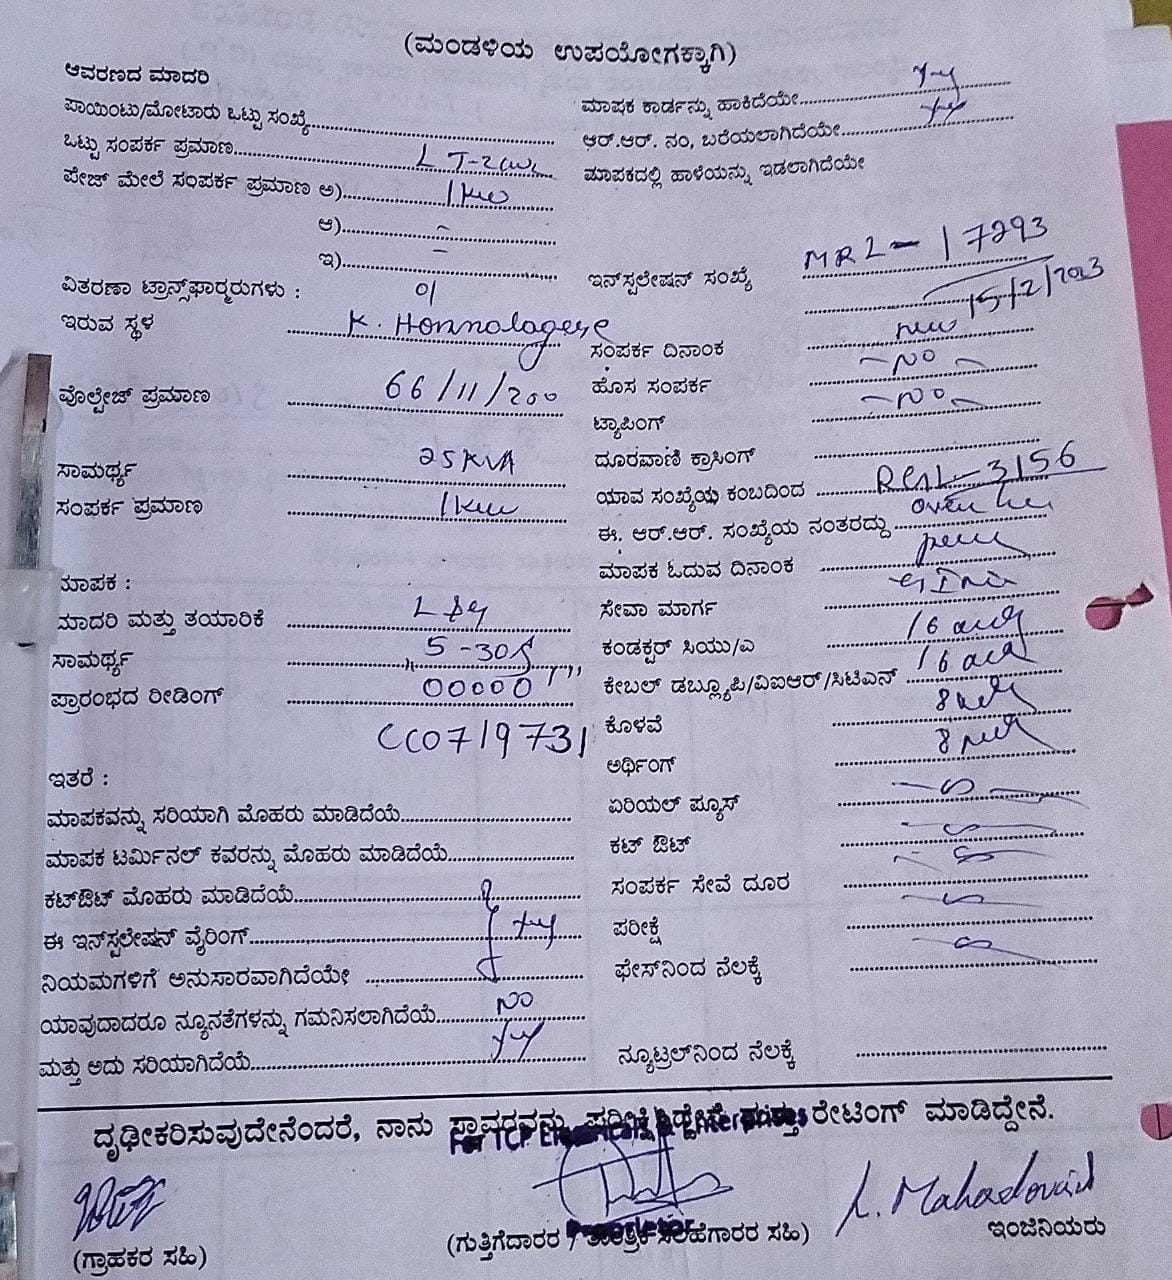 (ಮಂಡಳಿಯ ಉಪಯೋಗಕ್ಕಾಗಿ)
ಆವರಣದ ಮಾದರಿ
ಪಾಯಿಂಟು/ಮೋಟಾರು ಒಟ್ಟು ಸಂಖ್ಯೆ
ಒಟ್ಟು ಸಂಪರ್ಕ ಪ್ರಮಾಣ
ಪೇಜ್ ಮೇಲೆ ಸಂಪರ್ಕ ಪ್ರಮಾಣ ಅ) 1kw
ಆ) =
ಇ) –
ವಿತರಣಾ ಟ್ರಾನ್ಸ್‌ಫಾರ್‍ಮರುಗಳು : 01
ಇರುವ ಸ್ಥಳ K. Honnalagere
ವೊಲ್ಟೇಜ್ ಪ್ರಮಾಣ 66/11/200
ಸಾಮರ್ಥ್ಯ 25KVA
ಸಂಪರ್ಕ ಪ್ರಮಾಣ 1kw
ಮಾಪಕ :
ಮಾದರಿ ಮತ್ತು ತಯಾರಿಕೆ L&G
ಸಾಮರ್ಥ್ಯ 5-30
ಪ್ರಾರಂಭದ ರೀಡಿಂಗ್ 00000
CC0719731
ಇತರೆ :
ಮಾಪಕವನ್ನು ಸರಿಯಾಗಿ ಮೊಹರು ಮಾಡಿದೆಯೆ
ಮಾಪಕ ಟರ್ಮಿನಲ್ ಕವರನ್ನು ಮೊಹರು ಮಾಡಿದೆಯೆ
ಕಟ್‌ಔಟ್ ಮೊಹರು ಮಾಡಿದೆಯೆ
ಈ ಇನ್‌ಸ್ಟಲೇಷನ್ ವೈರಿಂಗ್
ನಿಯಮಗಳಿಗೆ ಅನುಸಾರವಾಗಿದೆಯೇ
ಯಾವುದಾದರೂ ನ್ಯೂನತೆಗಳನ್ನು ಗಮನಿಸಲಾಗಿದೆಯೆ NO
ಮತ್ತು ಅದು ಸರಿಯಾಗಿದೆಯೆ
ಮಾಪಕ ಕಾರ್ಡನ್ನು ಹಾಕಿದೆಯೇ
ಆರ್.ಆರ್. ನಂ, ಬರೆಯಲಾಗಿದೆಯೇ
ಮಾಪಕದಲ್ಲಿ ಹಾಳೆಯನ್ನು ಇಡಲಾಗಿದೆಯೇ
ಇನ್‌ಸ್ಟಲೇಷನ್ ಸಂಖ್ಯೆ MRL-17293
15/2/2023
ಸಂಪರ್ಕ ದಿನಾಂಕ new
ಹೊಸ ಸಂಪರ್ಕ – NO –
ಟ್ಯಾಪಿಂಗ್ – NO –
ದೂರವಾಣಿ ಕ್ರಾಸಿಂಗ್
ಯಾವ ಸಂಖ್ಯೆಯ ಕಂಬದಿಂದ 3156
ಈ. ಆರ್.ಆರ್. ಸಂಖ್ಯೆಯ ನಂತರದ್ದು
ಮಾಪಕ ಓದುವ ದಿನಾಂಕ
ಸೇವಾ ಮಾರ್ಗ
ಕಂಡಕ್ಟರ್ ಸಿಯು/ಎ 16
ಕೇಬಲ್ ಡಬ್ಲ್ಯೂಪಿ/ವಿಐಆರ್/ಸಿಟಿಎನ್ 16
ಕೊಳವೆ 8
ಅರ್ಥಿಂಗ್ 8
ಏರಿಯಲ್ ಫ್ಯೂಸ್
ಕಟ್ ಔಟ್
ಸಂಪರ್ಕ ಸೇವೆ ದೂರ
ಪರೀಕ್ಷೆ
ಫೇಸ್‌ನಿಂದ ನೆಲಕ್ಕೆ
ನ್ಯೂಟ್ರಲ್‌ನಿಂದ ನೆಲಕ್ಕೆ
ದೃಢೀಕರಿಸುವುದೇನೆಂದರೆ, ನಾನು ಸ್ಥಾವರವನ್ನು ಪರೀಕ್ಷಿಸಿದ್ದೇನೆ ಮತ್ತು ರೇಟಿಂಗ್ ಮಾಡಿದ್ದೇನೆ.
For TCP Electricals & Enterprises
Proprietor
(ಗ್ರಾಹಕರ ಸಹಿ)
(ಗುತ್ತಿಗೆದಾರರ / ತಾಂತ್ರಿಕ ಸಲಹೆಗಾರರ ಸಹಿ)
ಇಂಜಿನಿಯರು